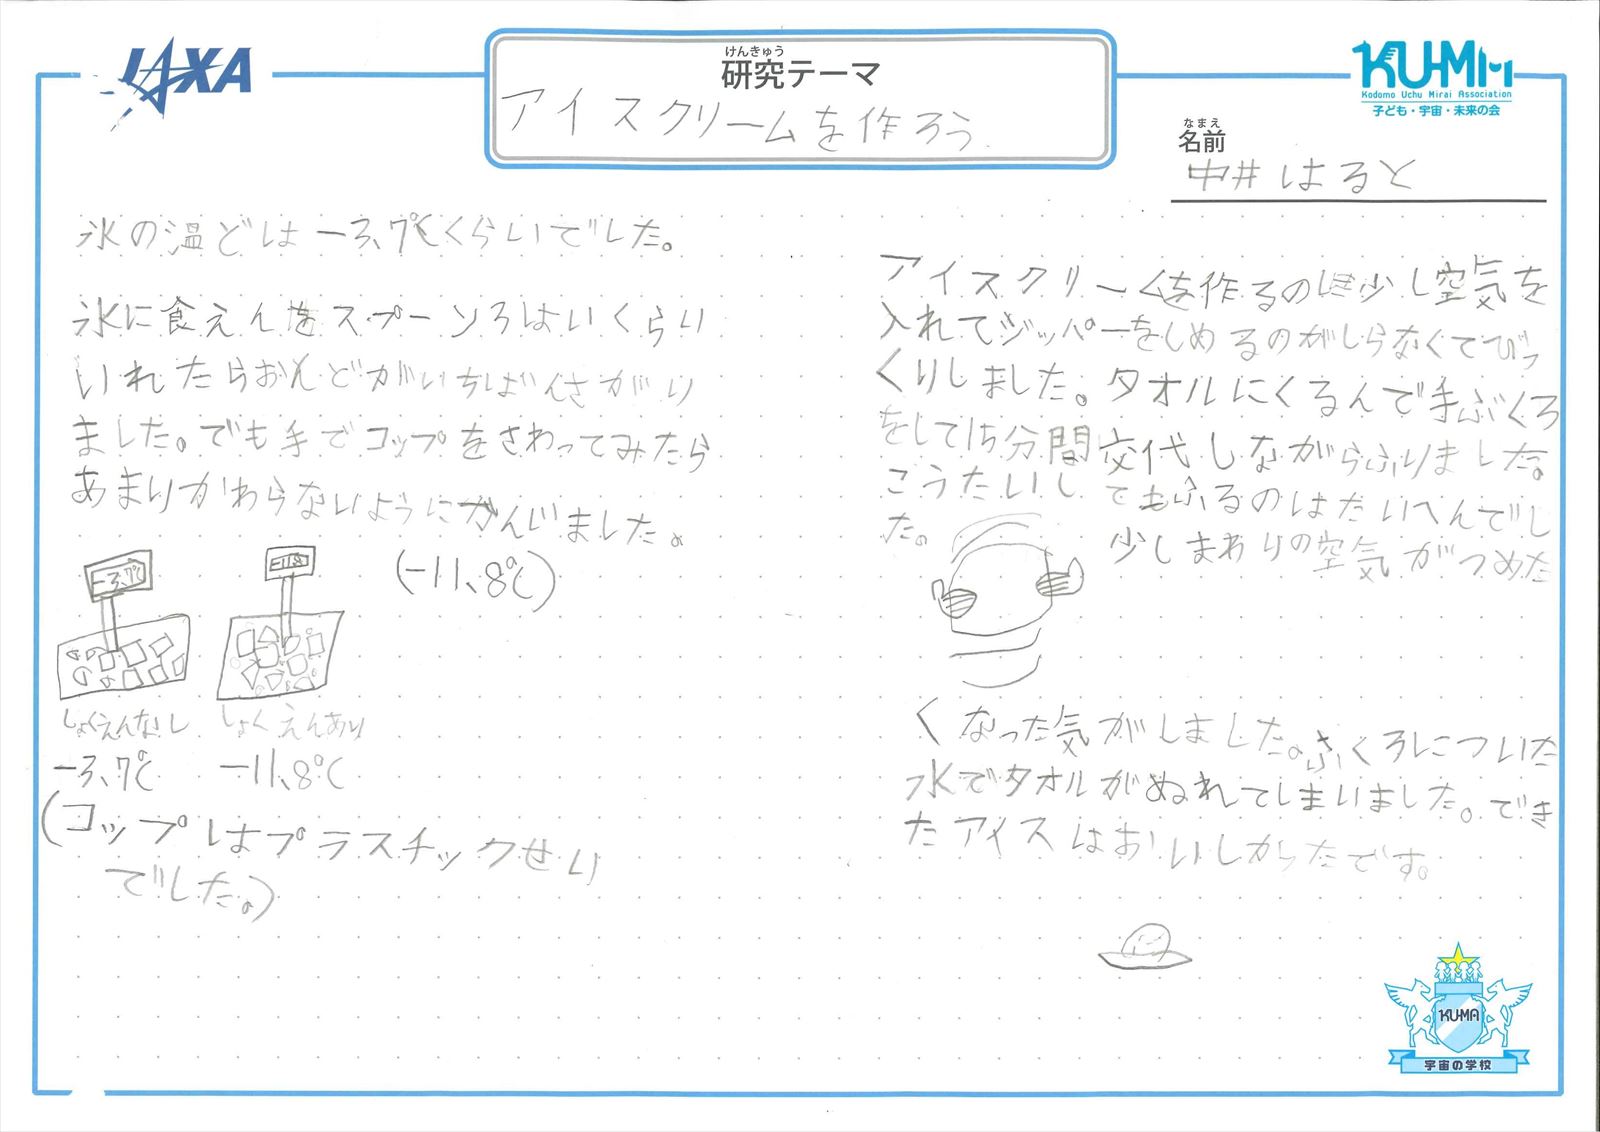 JAXA
けんきゅう
研究テーマ
アイスクリームを作ろう
KU-MA
Kodomo Uchu Mirai Association
子ども・宇宙・未来の会
なまえ
名前
中井はると
氷の温どは-3.7℃くらいでした。
氷に食えんをスプーン3ばいくらい
いれたらおんどがいちばんさがり
ました。でも手でコップをさわってみたら
あまりかわらないようにかんじました。
-3.7℃
-11.8
(-11.8℃)
しょくえんなし
しょくえんあり
-3.7℃
-11.8℃
(コップはプラスチックせい
でした。)
アイスクリームを作るのに少し空気を
入れてジッパーをしめるのがしらなくてびっ
くりしました。タオルにくるんで手ぶくろ
をして15分間交代しながらふりました。
こうたいしてもふるのはたいへんでし
た。
少しまわりの空気がつめた
くなった気がしました。ふくろについた
水でタオルがぬれてしまいました。でき
たアイスはおいしかったです。
KU-MA
宇宙の学校